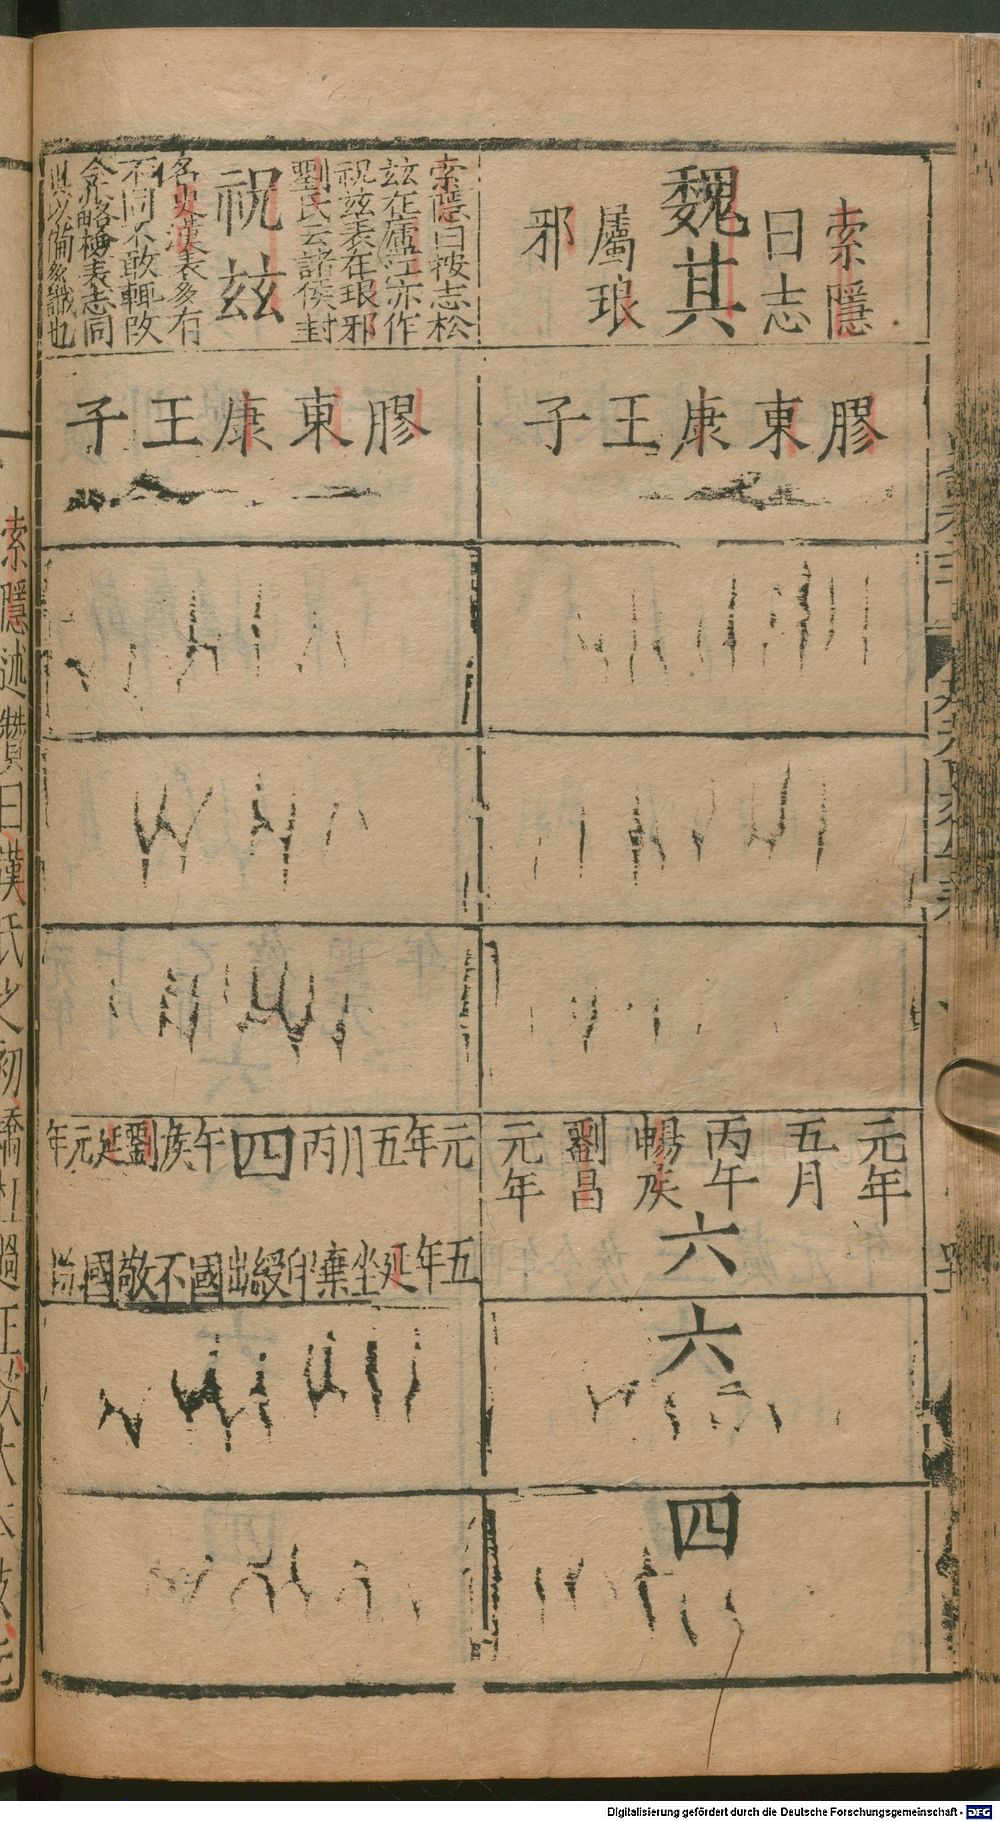 索隱
曰志
魏其
屬琅
邪
膠東康王子
元年
五月
丙午
暢侯
劉昌
元年
六
六
四
索隱曰按志松
玆在廬江亦作
祝玆表在琅邪
劉氏云諸侯封
祝玆
名史漢表多有
不同不敢輒改
今亦略檢表志同
異以備多識也
膠東康王子
元年五月丙
四
午侯劉延元年
五年延坐棄印綬出國不敬國除
索隱述贊曰漢氏之初矯枉過正
Digitalisierung gefördert durch die Deutsche Forschungsgemeinschaft - DFG